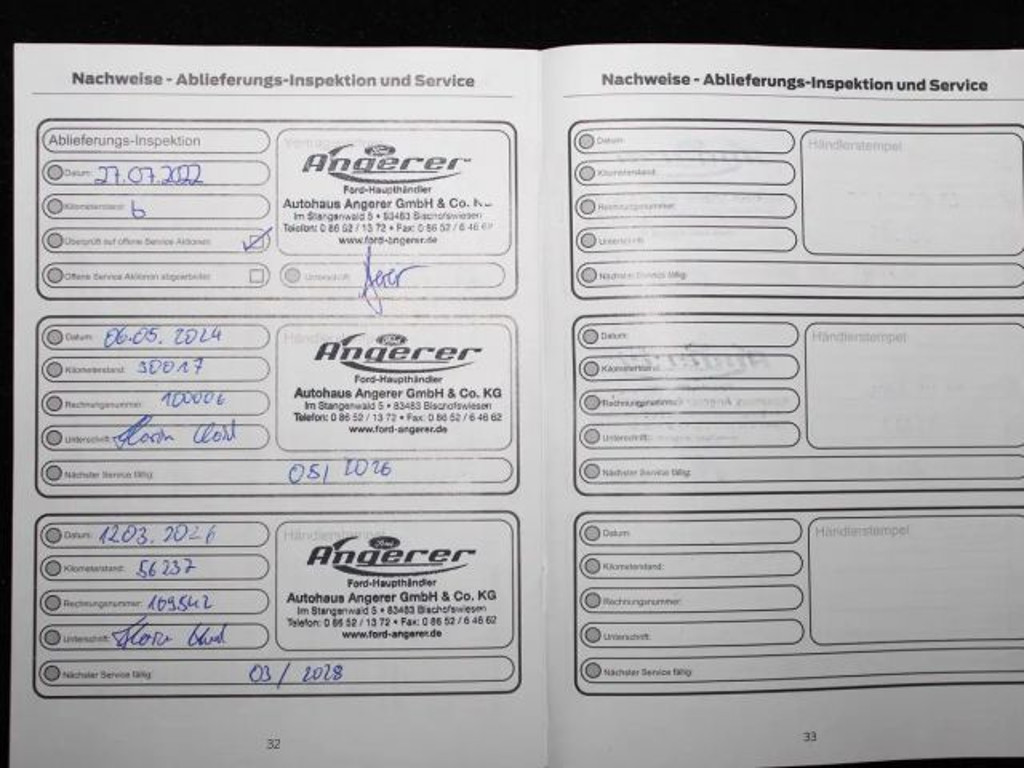 Nachweise - Ablieferungs-Inspektion und Service
Ablieferungs-Inspektion
Datum: 27.07.2022
Kilometerstand: 6
Überprüft auf offene Service Aktionen:
Offene Service Aktionen abgearbeitet:
Angerer
Ford-Haupthändler
Autohaus Angerer GmbH & Co.
Im Stangenwald 5 • 83483 Bischofswiesen
Telefon: 0 86 52 / 13 72 • Fax: 0 86 52 / 6 46
www.ford-angerer.de
Unterschrift:
Datum: 06.05.2024
Kilometerstand: 30017
Rechnungsnummer: 100006
Unterschrift:
Ford
Angerer
Ford-Haupthändler
Autohaus Angerer GmbH & Co. KG
Im Stangenwald 5 • 83483 Bischofswiesen
Telefon: 0 86 52 / 13 72 • Fax: 0 86 52 / 6 46 62
www.ford-angerer.de
Nächster Service fällig: 05/2026
Datum: 1203.2026
Kilometerstand: 56237
Rechnungsnummer: 109542
Unterschrift:
Händlerstempel
Ford
Angerer
Ford-Haupthändler
Autohaus Angerer GmbH & Co. KG
Im Stangenwald 5 • 83483 Bischofswiesen
Telefon: 0 86 52 / 13 72 • Fax: 0 86 52 / 6 46 62
www.ford-angerer.de
Nächster Service fällig: 03/2028
32
Nachweise - Ablieferungs-Inspektion und Service
Datum:
Kilometerstand:
Rechnungsnummer:
Unterschrift:
Händlerstempel
Nächster Service fällig:
Datum:
Kilometerstand:
Rechnungsnummer:
Unterschrift:
Händlerstempel
Nächster Service fällig:
Datum:
Kilometerstand:
Rechnungsnummer:
Unterschrift:
Händlerstempel
Nächster Service fällig:
33